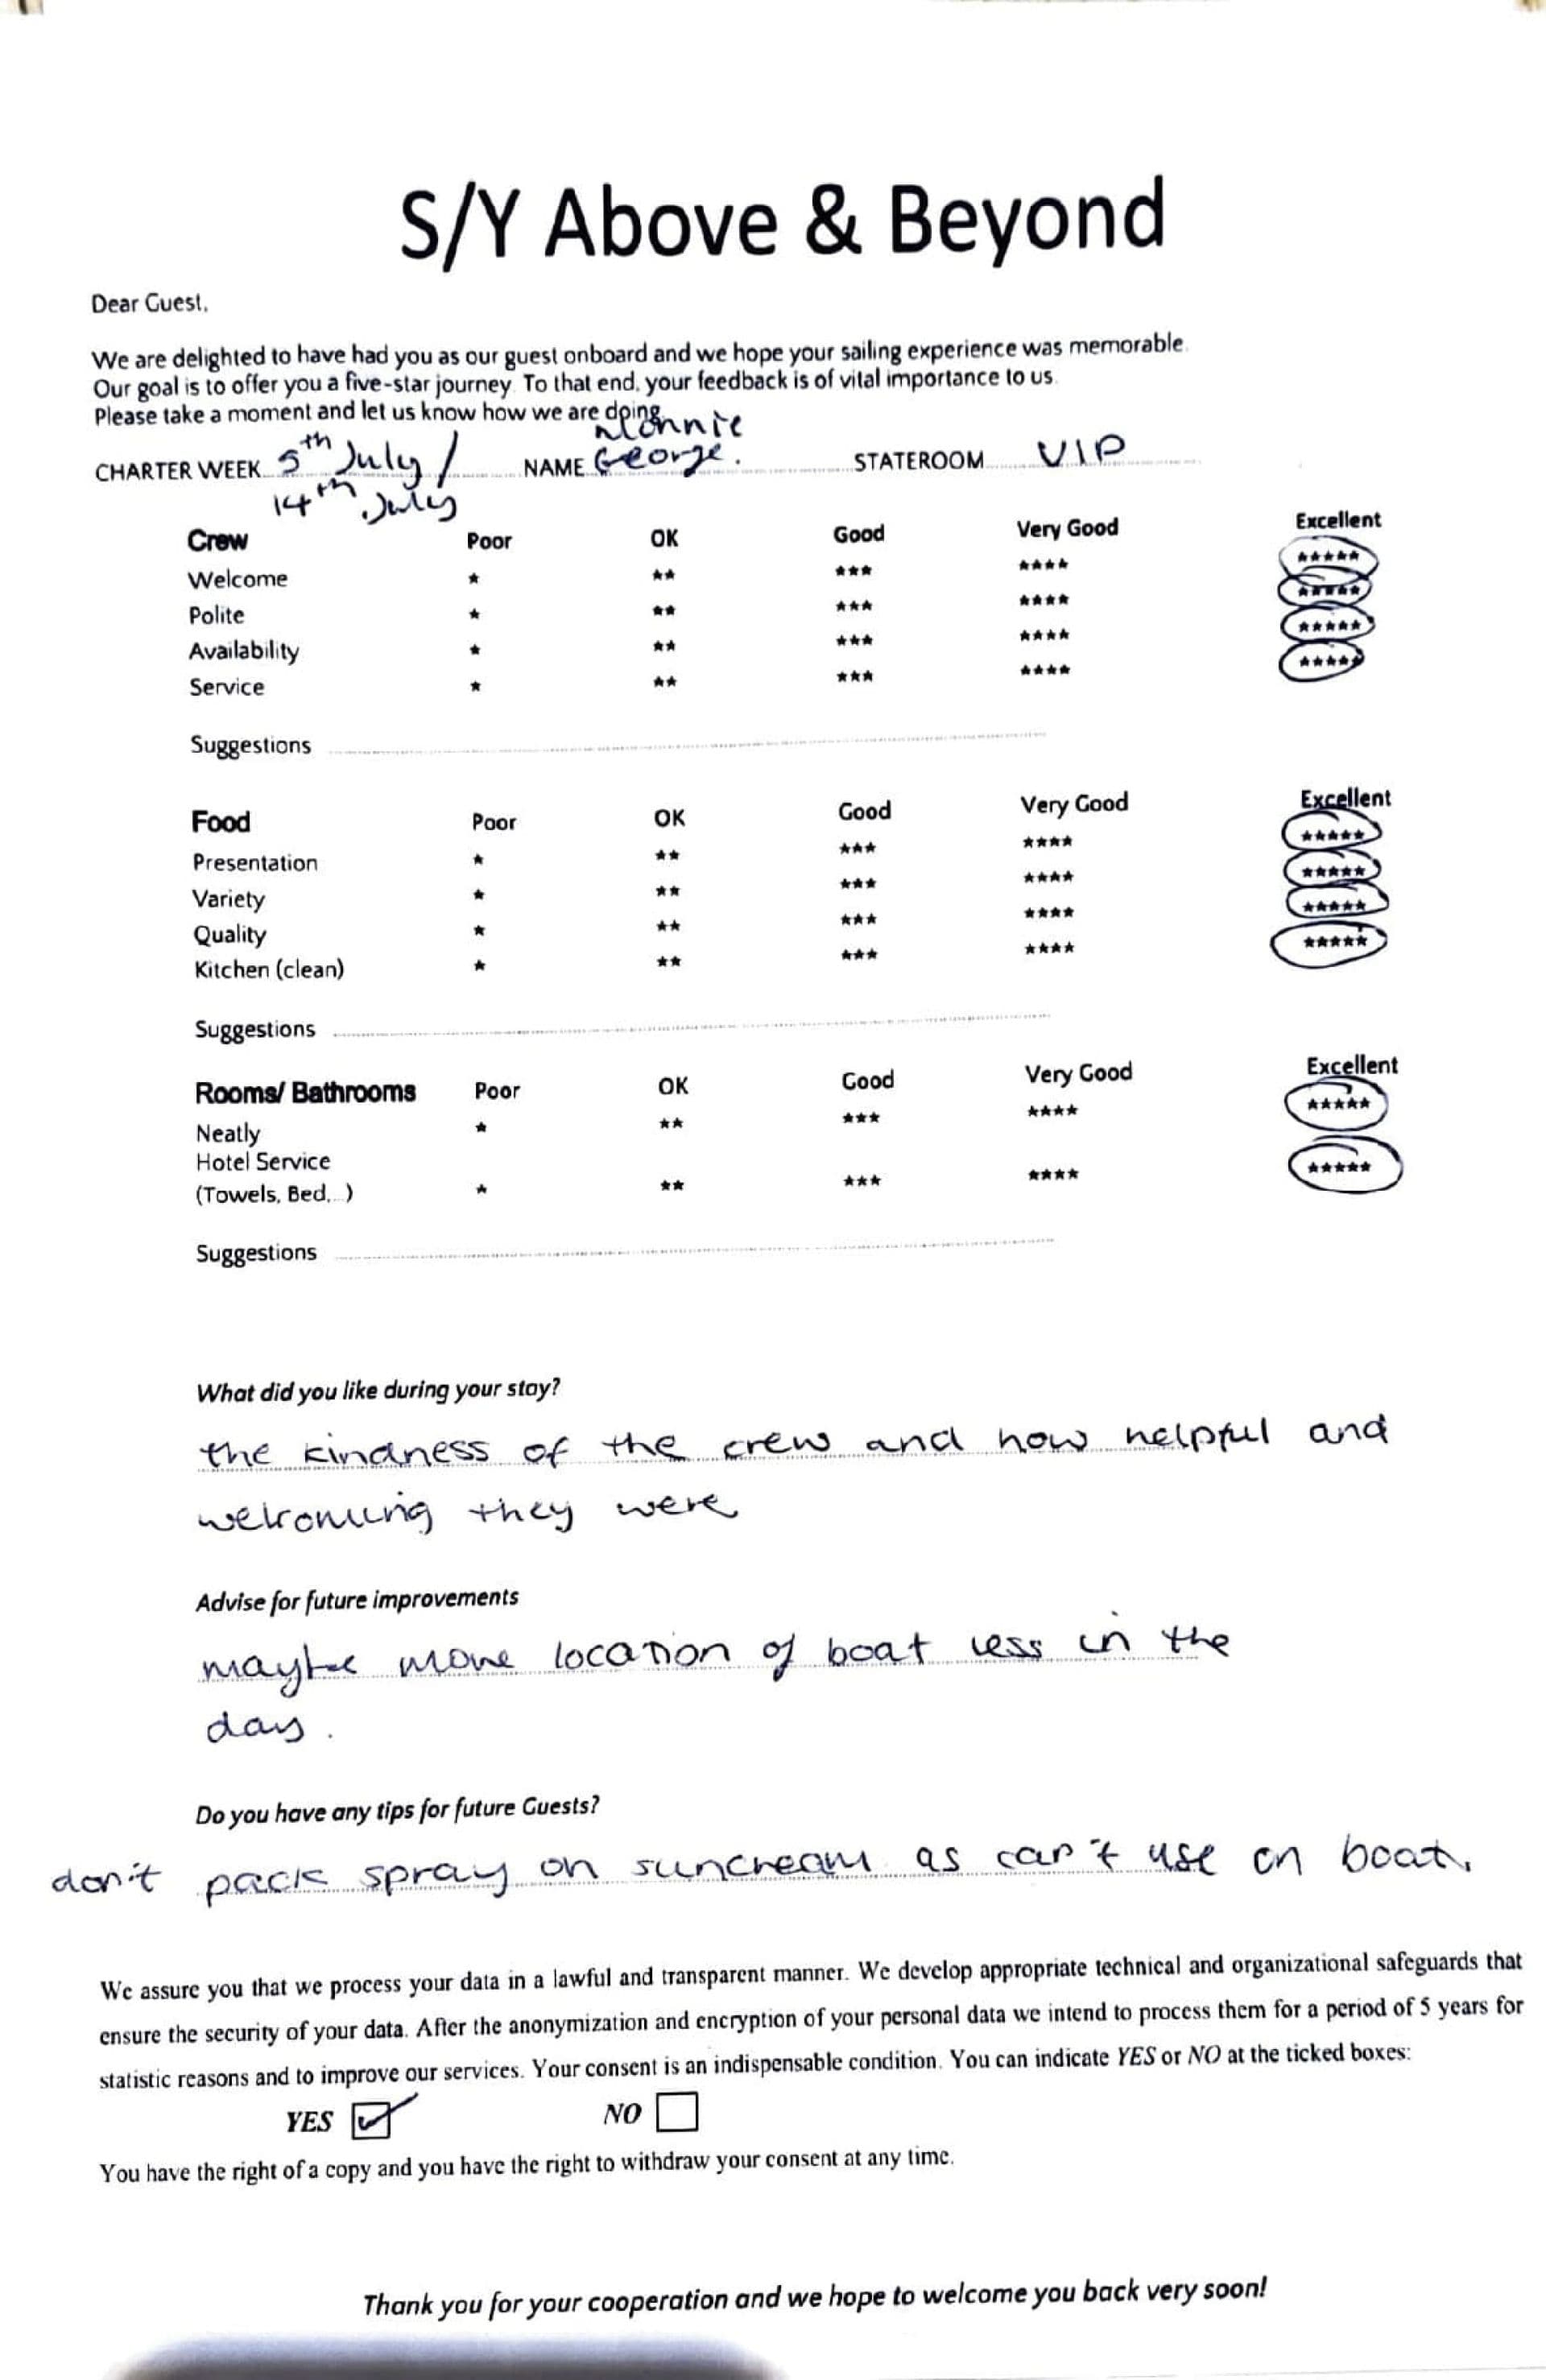 S/Y Above & Beyond
Dear Guest,
We are delighted to have had you as our guest onboard and we hope your sailing experience was memorable.
Our goal is to offer you a five-star journey. To that end, your feedback is of vital importance to us.
Please take a moment and let us know how we are doing.
CHARTER WEEK 5th July / NAME George. STATEROOM VIP
14th July
Crew Poor OK Good Very Good Excellent
Welcome * ** *** **** *****
Polite * ** *** **** *****
Availability * ** *** **** *****
Service * ** *** **** *****
Suggestions
Food Poor OK Good Very Good Excellent
Presentation * ** *** **** *****
Variety * ** *** **** *****
Quality * ** *** **** *****
Kitchen (clean) * ** *** **** *****
Suggestions
Rooms/ Bathrooms Poor OK Good Very Good Excellent
Neatly * ** *** **** *****
Hotel Service
(Towels, Bed,...) * ** *** **** *****
Suggestions
What did you like during your stay?
the kindness of the crew and how helpful and
welcoming they were
Advise for future improvements
maybe move location of boat less in the
day.
Do you have any tips for future Guests?
don't pack spray on suncream as can't use on boat.
We assure you that we process your data in a lawful and transparent manner. We develop appropriate technical and organizational safeguards that
ensure the security of your data. After the anonymization and encryption of your personal data we intend to process them for a period of 5 years for
statistic reasons and to improve our services. Your consent is an indispensable condition. You can indicate YES or NO at the ticked boxes:
YES NO
You have the right of a copy and you have the right to withdraw your consent at any time.
Thank you for your cooperation and we hope to welcome you back very soon!